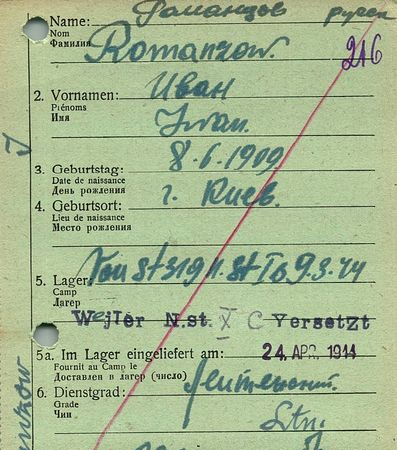 Name: Романцов русск
Nom
Фамилия Romanzow.
216
2. Vornamen: Иван
Prénoms
Имя Iwan.
3. Geburtstag: 8.6.1909.
Date de naissance
День рождения
4. Geburtsort: г. Киев.
Lieu de naissance
Место рождения
5. Lager: Von 9.3.44
Camp
Лагерь
Wejler N.st. X C Versetzt
5a. Im Lager eingeliefert am: 24. APR. 1944
Fournit au Camp le
Доставлен в лагерь (число)
6. Dienstgrad:
Grade
Чин Ltn.